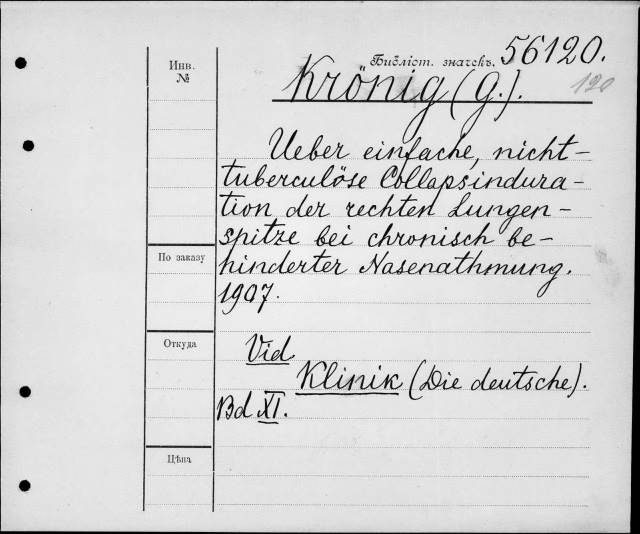 Инв.
№
Библіот. значекъ. 56120.
120
Krönig (G.).
Ueber einfache, nicht-
tuberculöse Collapsindura-
tion der rechten Lungen-
spitze bei chronisch be-
hinderter Nasenathmung.
1907.
По заказу
Откуда
Vid
Klinik (Die deutsche).
Bd XI.
Цѣна